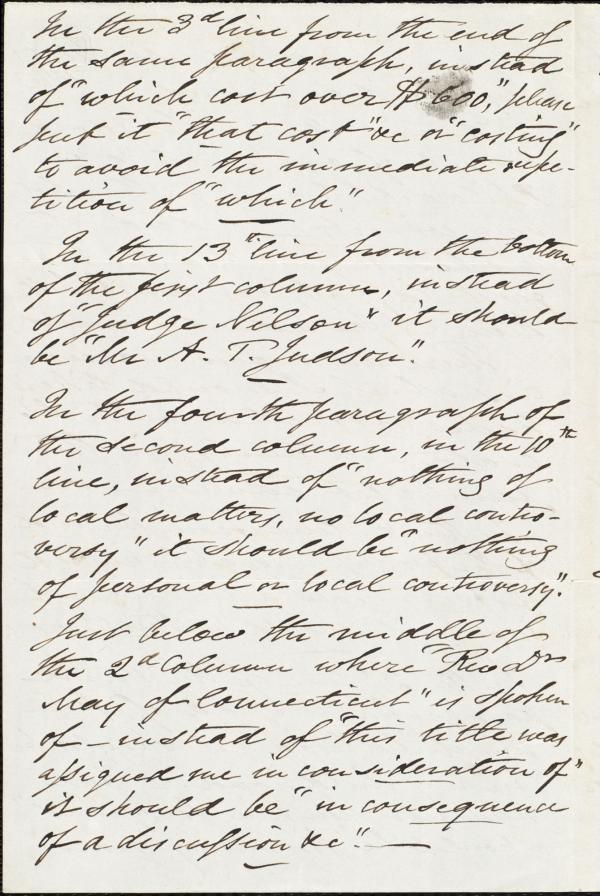 In the 3d line from the end of
the same paragraph, instead
of "which cost over $600," please
put it "that cost" &c or "costing"
to avoid the immediate repe-
tition of "which".
In the 13th line from the bottom
of the first column, instead
of "Judge Nelson" it should
be "Mr A. T. Judson".
In the fourth paragraph of
the second column, in the 10th
line, instead of "nothing of
local matters, no local contro-
versy" it should be "nothing
of personal or local controversy".
Just below the middle of
the 2d Column where "Rev Drs
May of Connecticut" is spoken
of – instead of "this title was
assigned me in consideration of"
it should be "in consequence
of a discussion &c". —